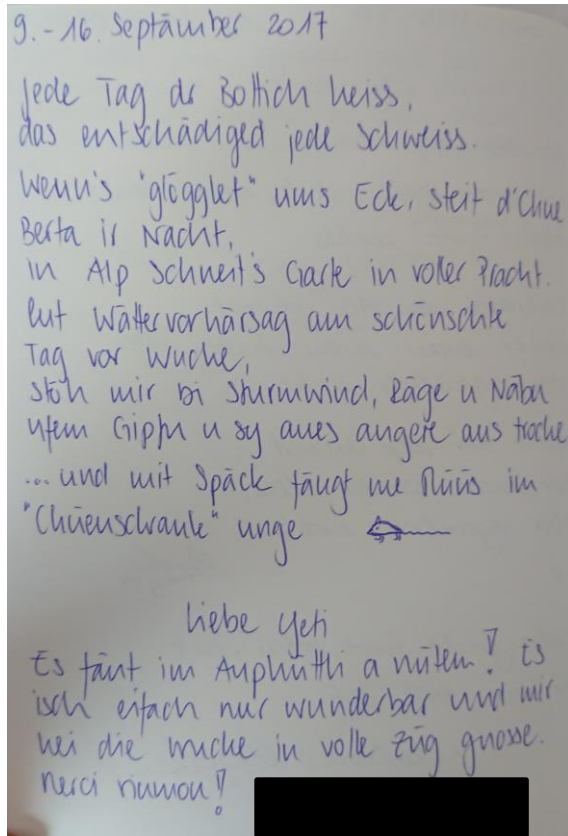 9.-16. Septämber 2017
Jede Tag dr Bottich heiss,
das entschädiged jede Schweiss.
Wenn's "glögglet" ums Eck, steit d'Chue
Berta ir Nacht,
in Alp Schneit's Garte in voller Pracht.
Lut Wättervorhärsag am schönschte
Tag vor Wuche,
stöh mir bi Sturmwind, Räge u Näbu
ufem Gipfu u sy aues angere aus troche
... und mit Späck fängt me Müüs im
"Chüenschrank" unge
Liebe Yeti
Es fäut im Auphüttli a nütem! Es
isch eifach nur wunderbar und mir
hei die wuche in volle Züg gnosse.
Merci viumou!